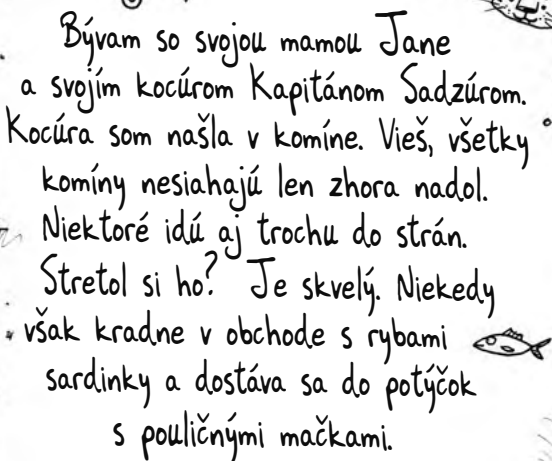 Bývam so svojou mamou Jane
a svojím kocúrom Kapitánom Sadzúrom.
Kocúra som našla v komíne. Vieš, všetky
komíny nesiahajú len zhora nadol.
Niektoré idú aj trochu do strán.
Stretol si ho? Je skvelý. Niekedy
však kradne v obchode s rybami
sardinky a dostáva sa do potýčok
s pouličnými mačkami.